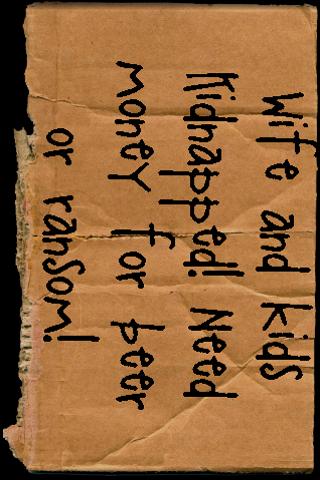 Wife and kids
Kidnapped! Need
money for beer
or ransom!